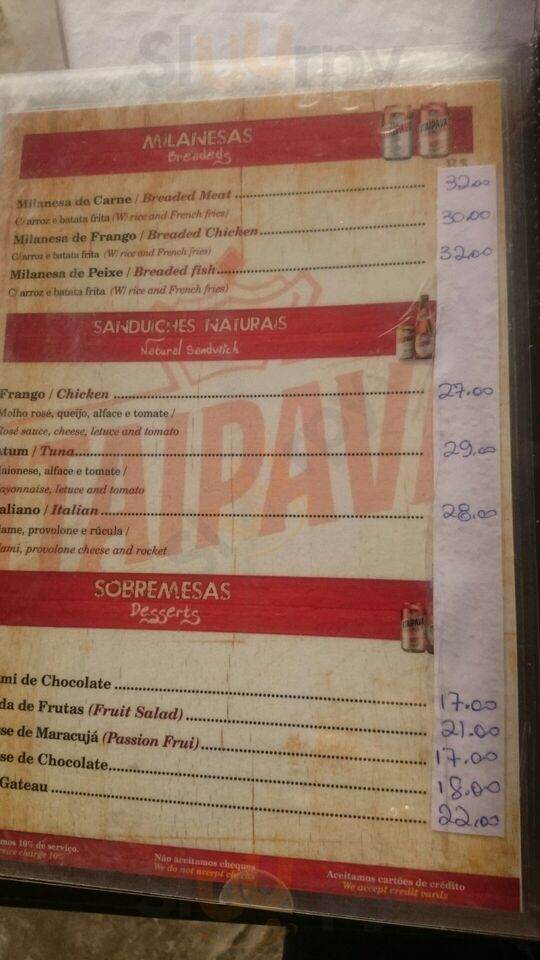 Sluurpy
MILANESAS
Breadeds
R$
Milanesa de Carne / Breaded Meat 32,00
C/ arroz e batata frita (W/ rice and French fries)
Milanesa de Frango / Breaded Chicken 30,00
C/ arroz e batata frita (W/ rice and French fries)
Milanesa de Peixe / Breaded fish 32,00
C/ arroz e batata frita (W/ rice and French fries)
SANDUICHES NATURAIS
Natural Sandwich
Frango / Chicken 27.00
Molho rosé, queijo, alface e tomate /
Rosé sauce, cheese, letuce and tomato
tum / Tuna 29,00
aionese, alface e tomate /
ayonnaise, letuce and tomato
aliano / Italian 28,00
lame, provolone e rúcula /
ami, provolone cheese and rocket
ITAIPAVA
SOBREMESAS
Desserts
mi de Chocolate 17.00
da de Frutas (Fruit Salad) 21.00
se de Maracujá (Passion Frui) 17.00
se de Chocolate 18.00
Gateau 22,00
mos 10% de serviço.
rvice charge 10%
Não aceitamos cheques
We do not accept checks
Aceitamos cartões de crédito
We accept credit cards